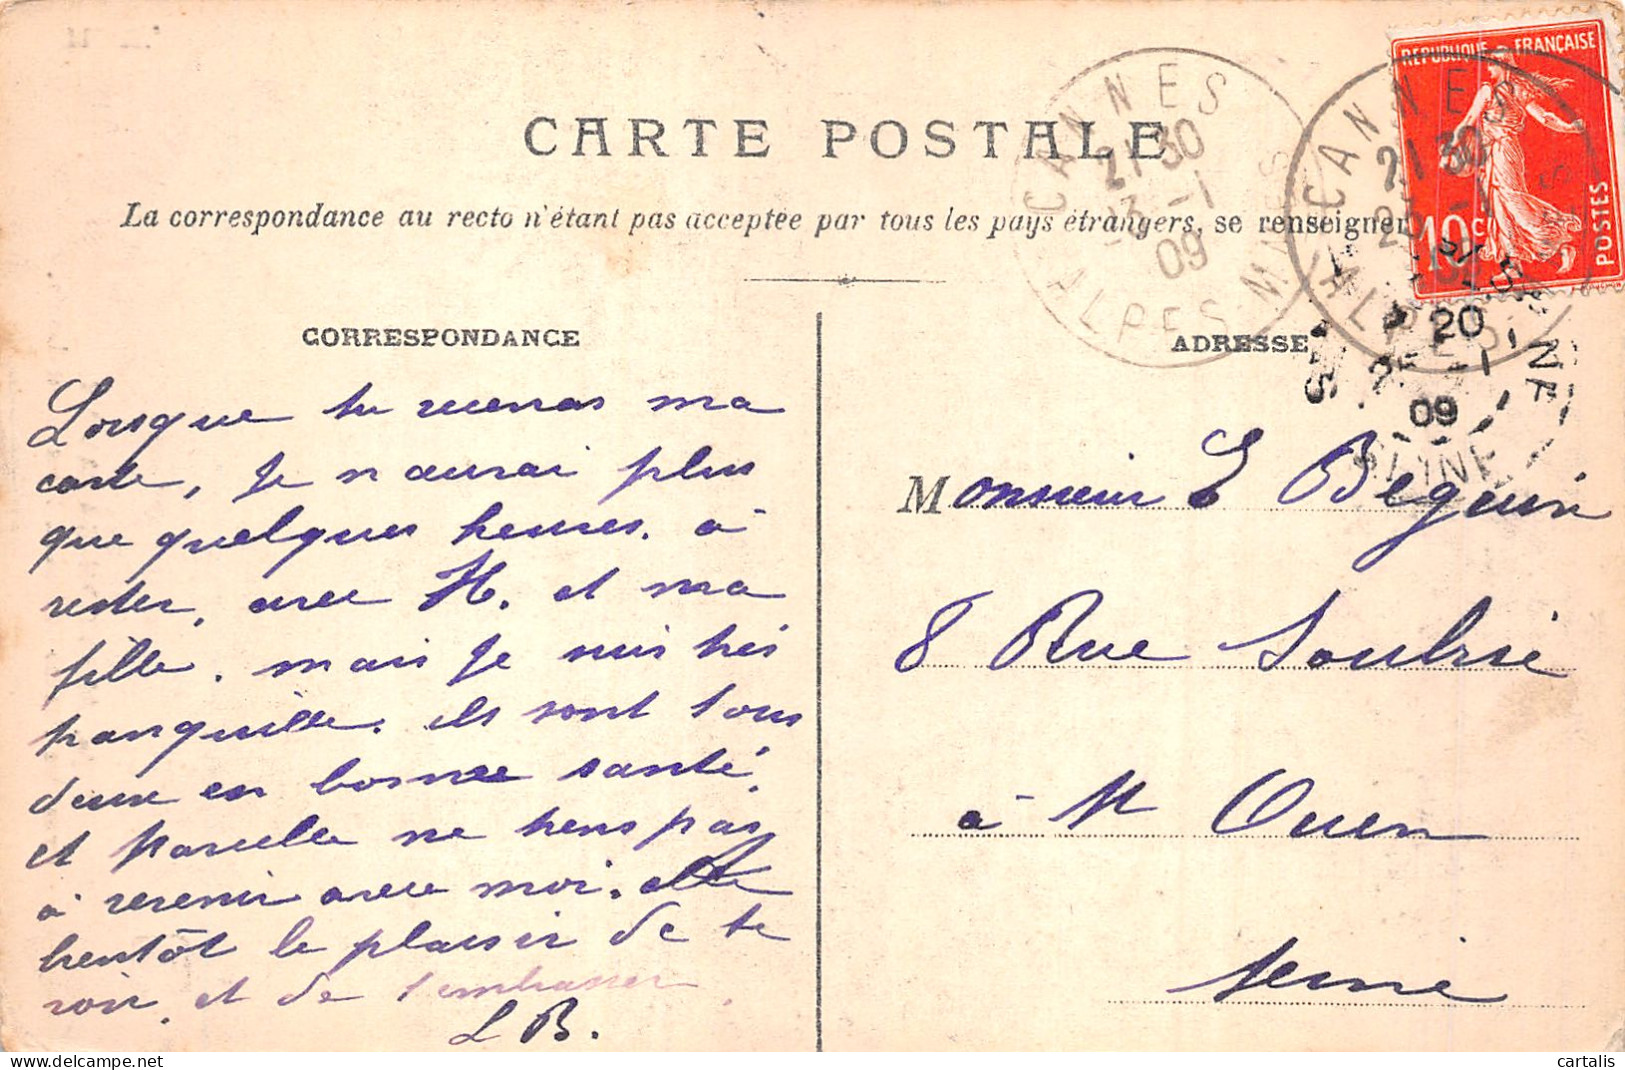 CARTE POSTALE
La correspondance au recto n'étant pas acceptée par tous les pays étrangers, se renseigner
RÉPUBLIQUE FRANÇAISE
10c
POSTES
CANNES
21 30
-1
09
ALPES MMES
CANNES
21 30
-1
ALPES
20
25 -1
09
SEINE
CORRESPONDANCE
Lorsque tu recevras ma
carte, Je n aurai plus
que quelques heures. à
rester, avec H. et ma
fille. mais Je suis très
tranquille. ils sont tous
deux en bonne santé,
et Marcelle ne tiens pas
à revenir avec moi. 
bientôt le plaisir de te
voir, et de t embrasser
L B.
ADRESSE
Monsieur L Beguin
8 Rue Soubise
à St Ouen
Seine
cartalis